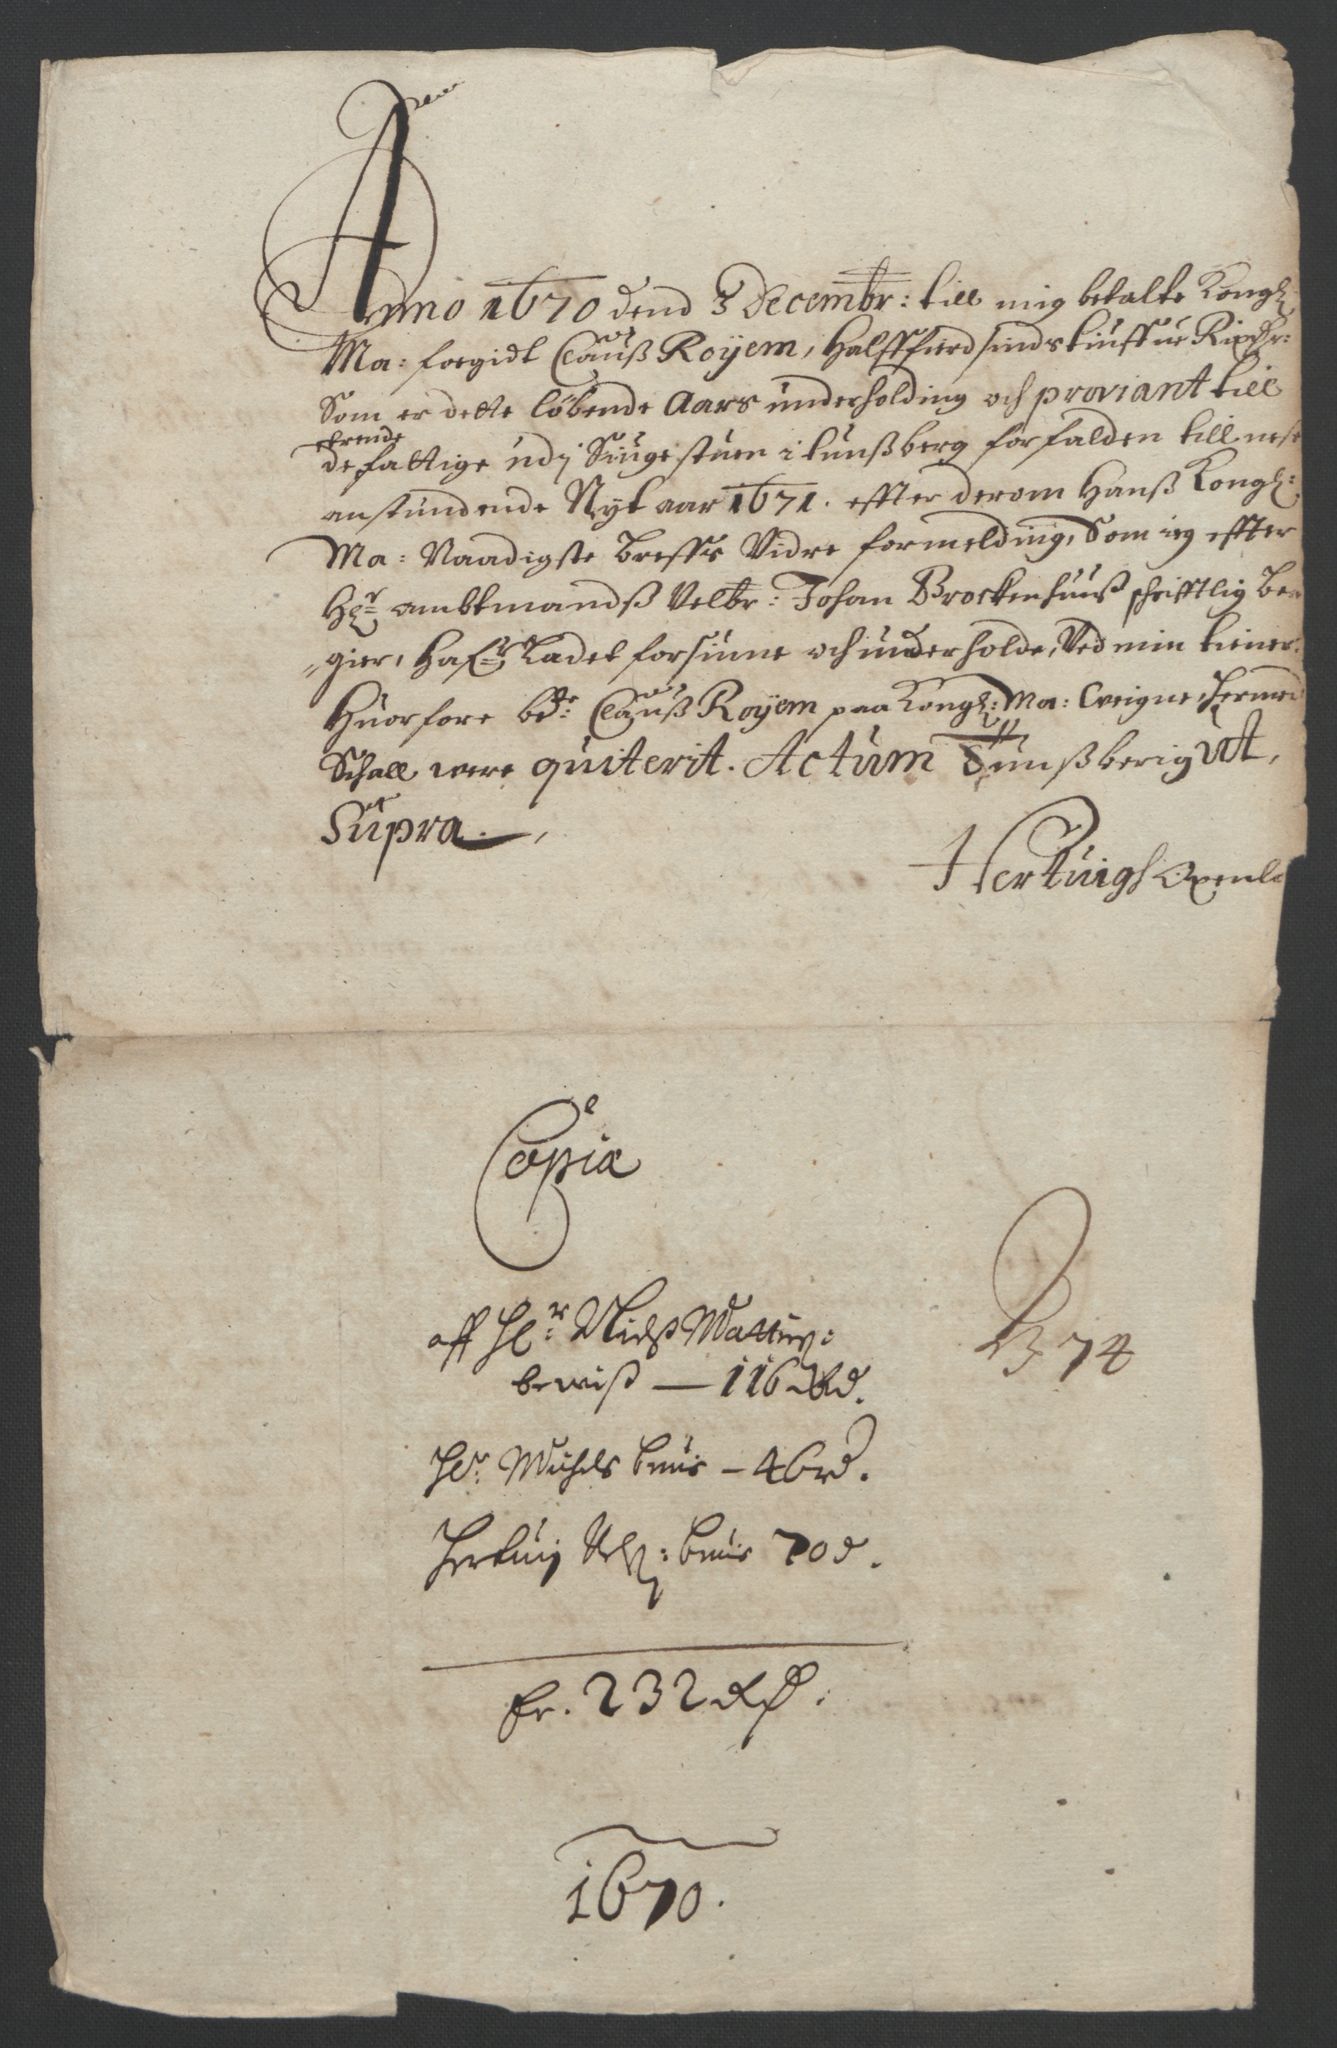 Anno 1670 dend 3 Decembr: till mig betalte Kongl:
Ma: fogidt Clauß Royem, Halfffierdsindstiuffue Rixdr:
Som er dette løbende Aars underholding och proviant till
de fattige udj Siugestuen i tunßberg forfalden till nest
anstundende Nyt aar 1671. effter derom Hanß Kongl:
Ma: Naadigste breffs Vidre formelding, Som ieg effter
Hr: ambtmandß Velbr: Johan Brockenhuuß schrifftlig be
gier, Hafr Ladet forsiune och underholde, Ved min tiener.
Huorfore bde: Clauß Royem paa Kongl: Ma: Weigne hermed
Schall were quiterit. Actum Tunßberig Ut,
Supra.
Hertuigh Oxenl
Copia
aff Hr: Nielß Mattis:
bewiß — 116 Rd.
Hr: Michels beuis – 46 rd.
Hertuig beuis 70 d.
Er. 232 Rd:
N 74
1670.